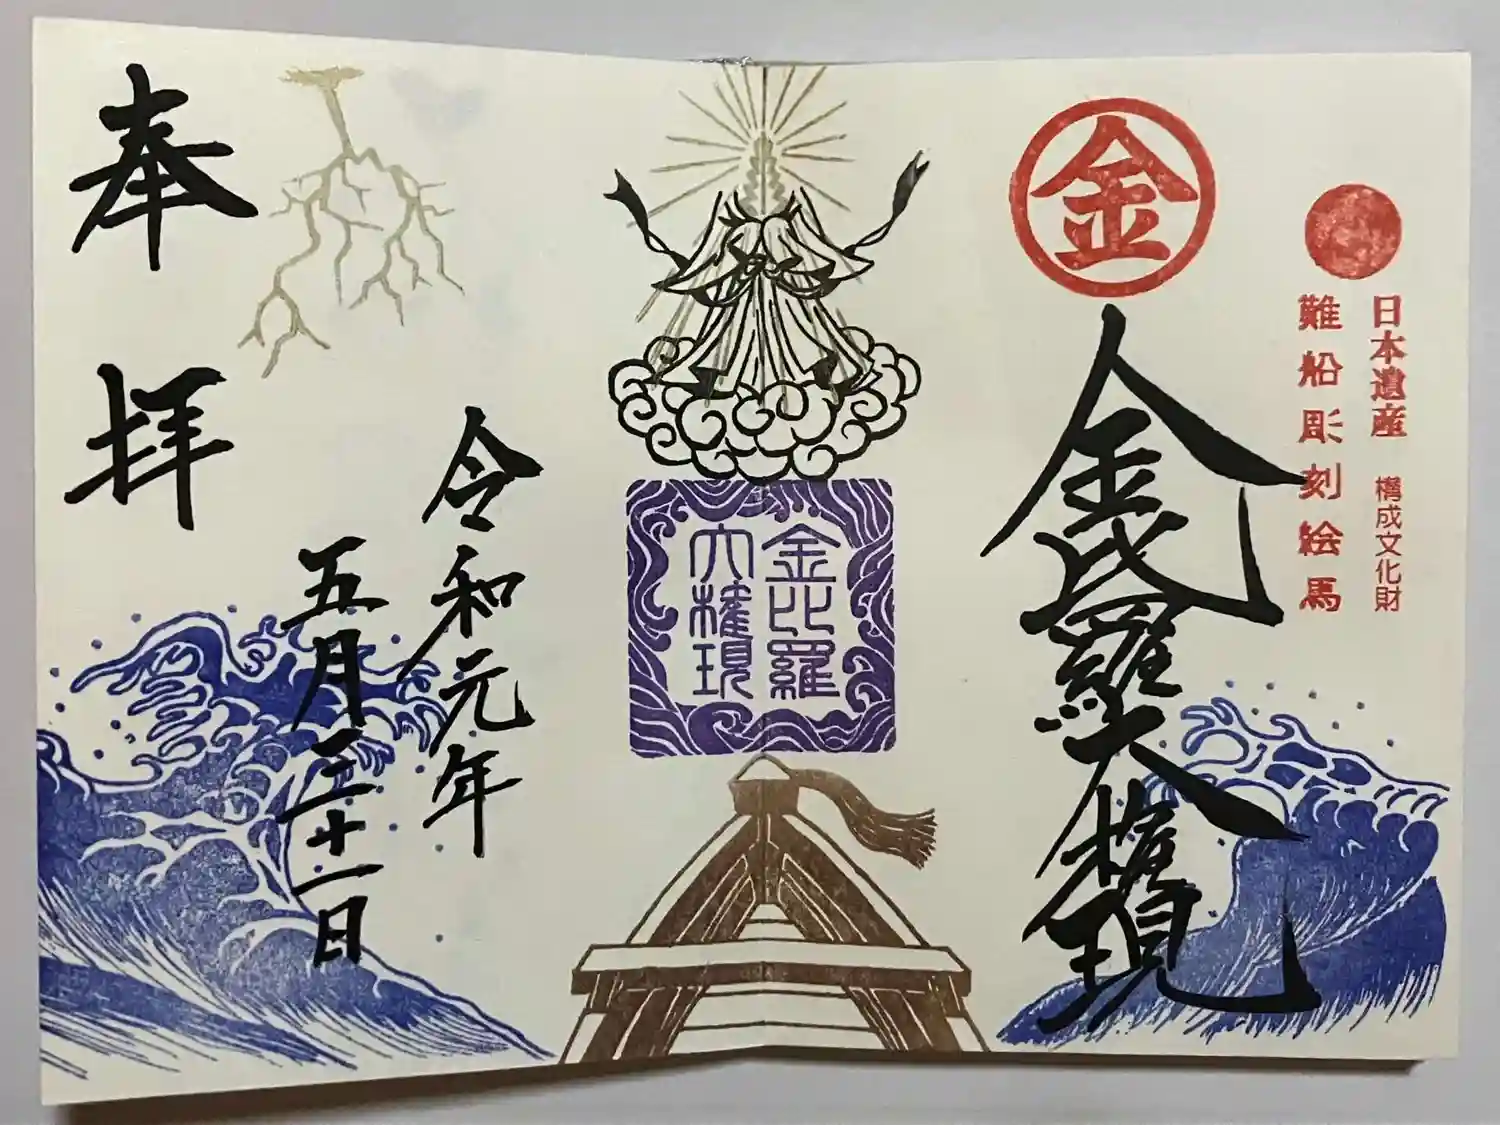 日本遺産 構成文化財
難船彫刻絵馬
金
金比羅大権現
金比羅
大権現
令和元年
五月三十一日
奉拝